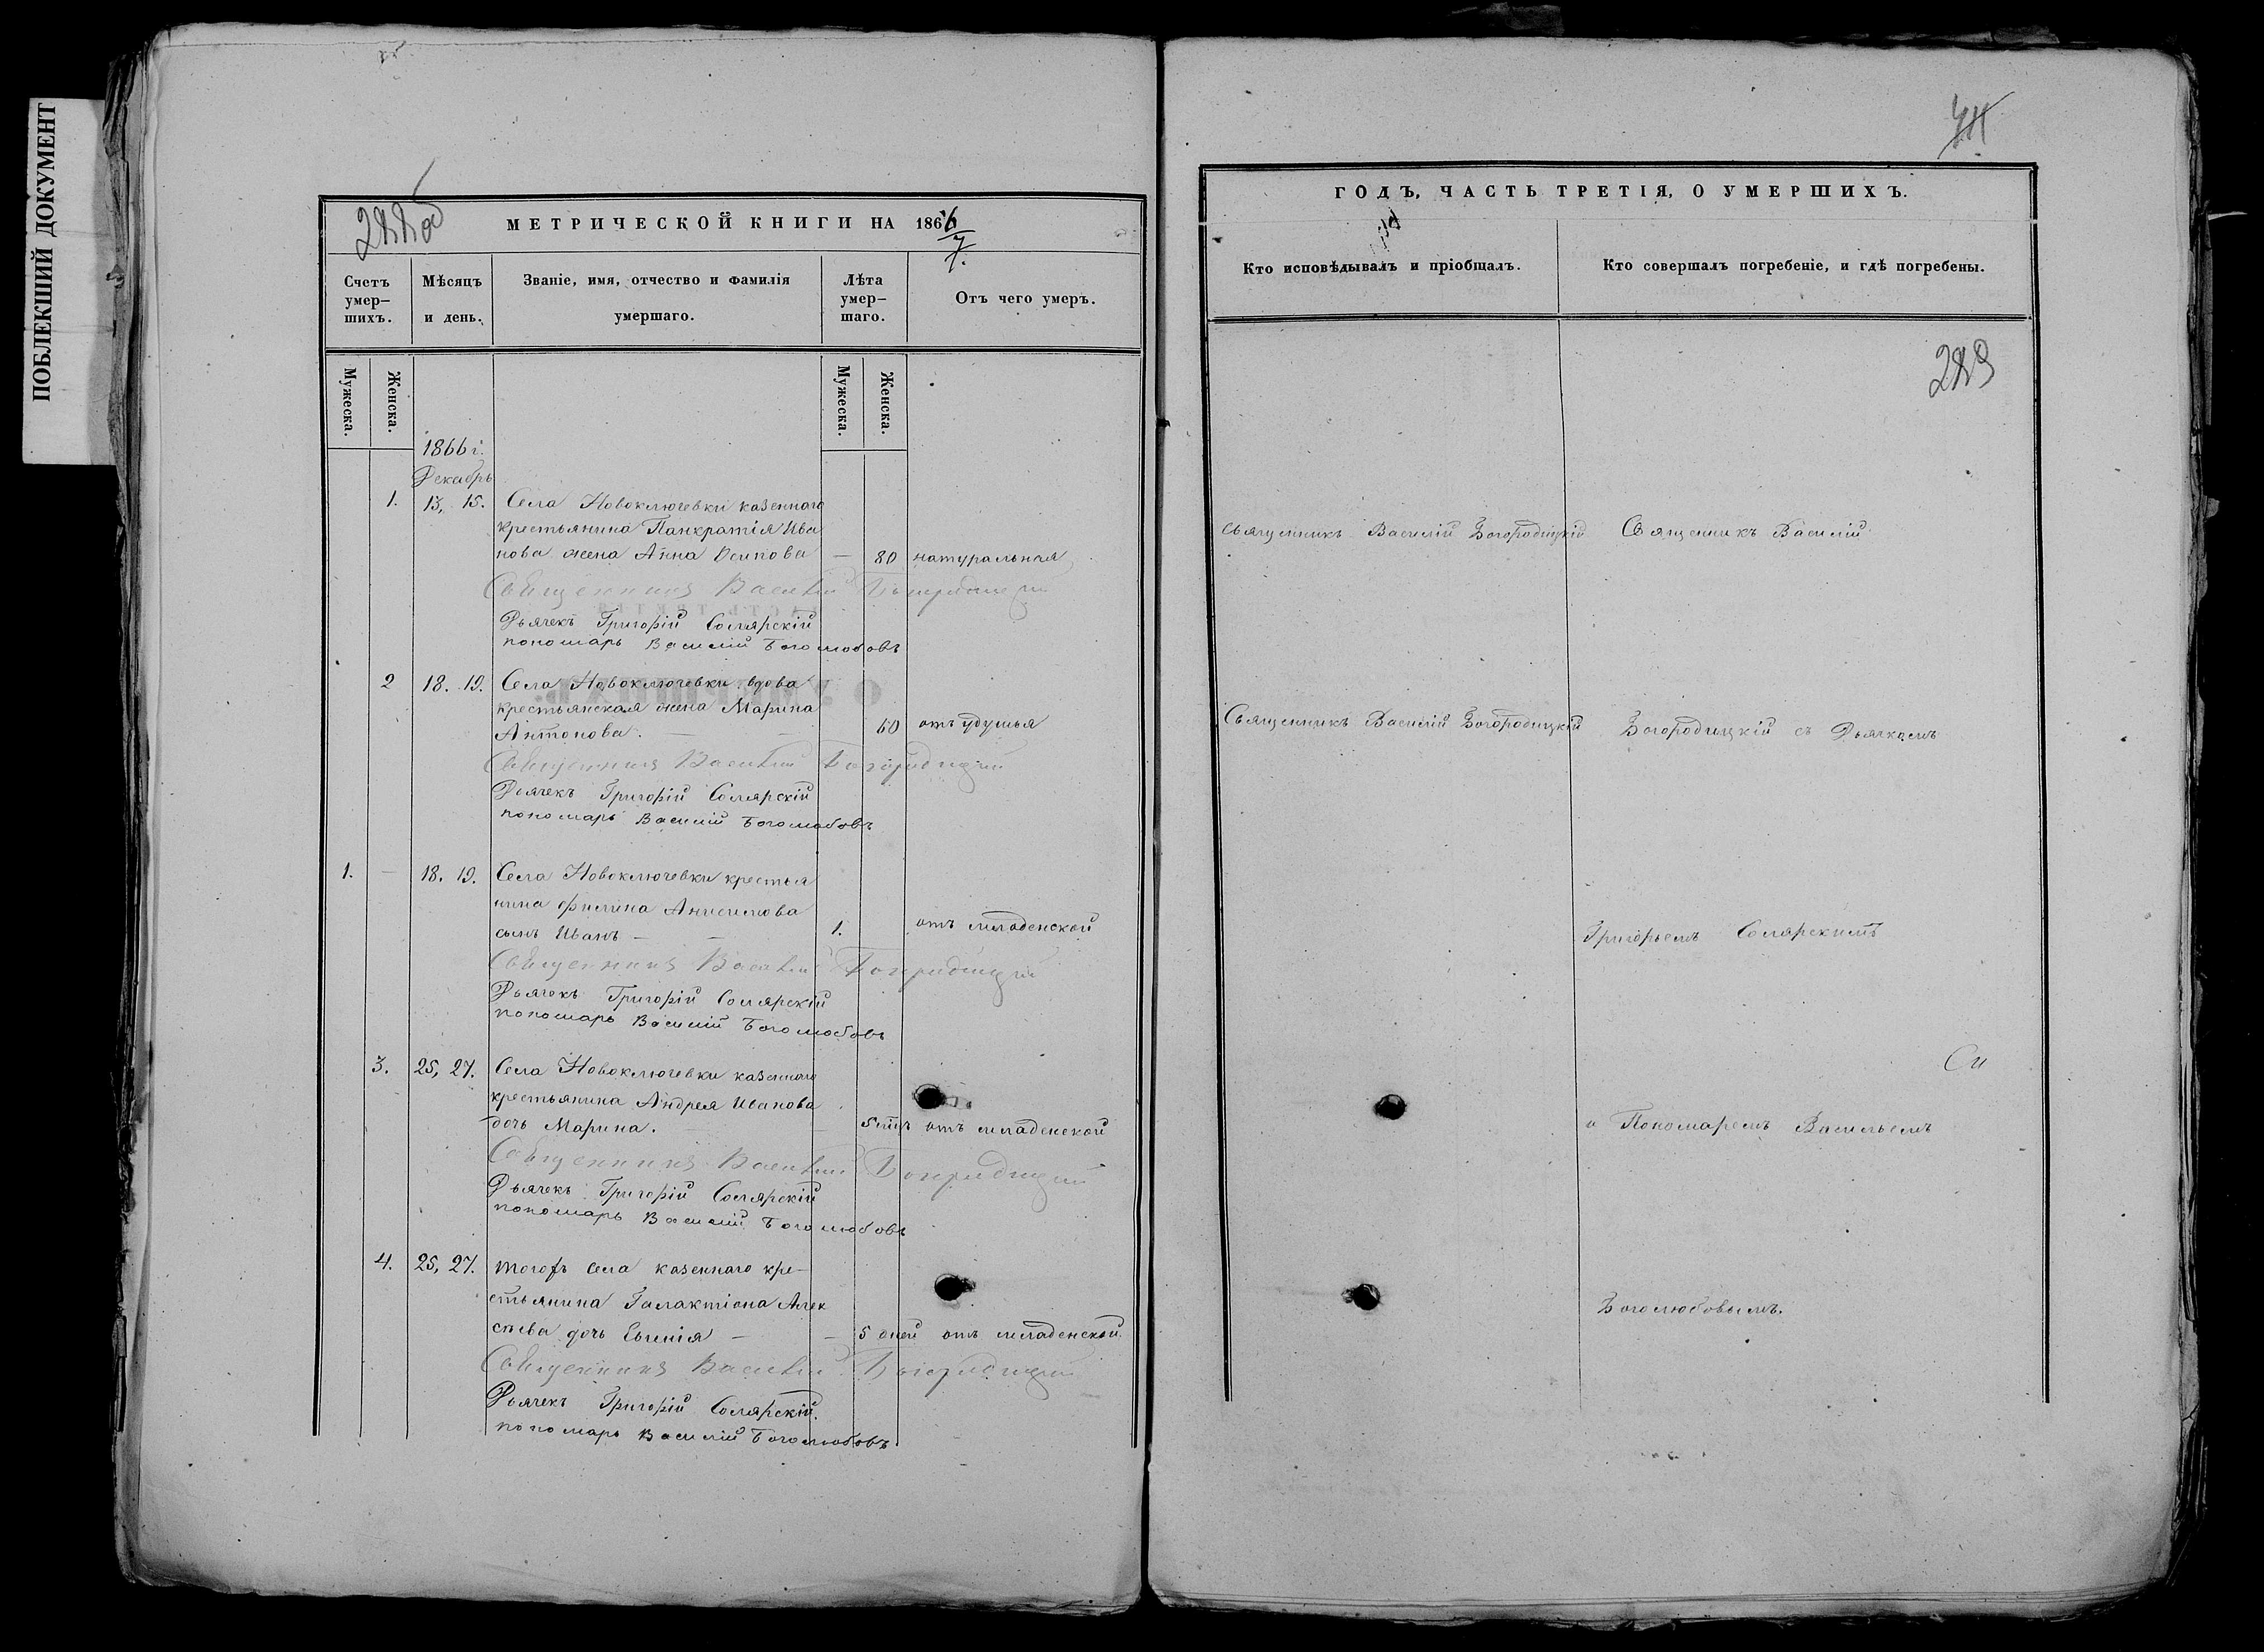 ПОБЛЕКШИЙ ДОКУМЕНТ
МЕТРИЧЕСКОЙ КНИГИ НА 1866/7.
Счетъ умер—шихъ.
Мѣсяцъ и день.
Званіе, имя, отчество и фамилія умершаго.
Лѣта умер—шаго.
Отъ чего умеръ.
Мужеска.
Женска.
Мужеска.
Женска.
1866 г.
Декабрь
1. 13, 15. Села Новоключевки казеннаго
крестьянина Панкратія Ива
нова жена Анна Осипова — 80 натуральная
Священникъ Василій Богородицкій
Дьячекъ Григорій Солярскій
пономарь Василій Боголюбовъ
2 18. 19. Села Новоключевки вдова
крестьянская жена Марина
Антонова. — — 60 отъ удушья
Священникъ Василій Богородицкій
Дьячекъ Григорій Солярскій
пономарь Василій Боголюбовъ
1. — 18. 19. Села Новоключевки крестья
нина Филипа Анисимова
сынъ Иванъ — — 1. отъ младенской
Священникъ Василій Богородицкій
Дьячекъ Григорій Солярскій
пономарь Василій Боголюбовъ
3. 25, 27. Села Новоключевки казеннаго
крестьянина Андрея Иванова
дочь Марина. 5 мцъ отъ младенской
Священникъ Василій Богородицкій
Дьячекъ Григорій Солярскій
пономарь Василій Боголюбовъ
4. 25, 27. тогожъ села казеннаго кре—
стьянина Галактіона Алек
сѣева дочь Евгенія — — 5 дней отъ младенской
Священникъ Василій Богородицкій
Дьячекъ Григорій Солярскій.
пономарь Василій Боголюбовъ
ГОДЪ, ЧАСТЬ ТРЕТІЯ, О УМЕРШИХЪ.
Кто исповѣдывалъ и пріобщалъ.
Кто совершалъ погребеніе, и гдѣ погребены.
Священникъ Василій Богородицкій
Священникъ Василій
Священникъ Василій Богородицкій
Богородицкій съ Дьячкомъ
Григорьемъ Солярскимъ
и Пономаремъ Васильемъ
Боголюбовымъ.